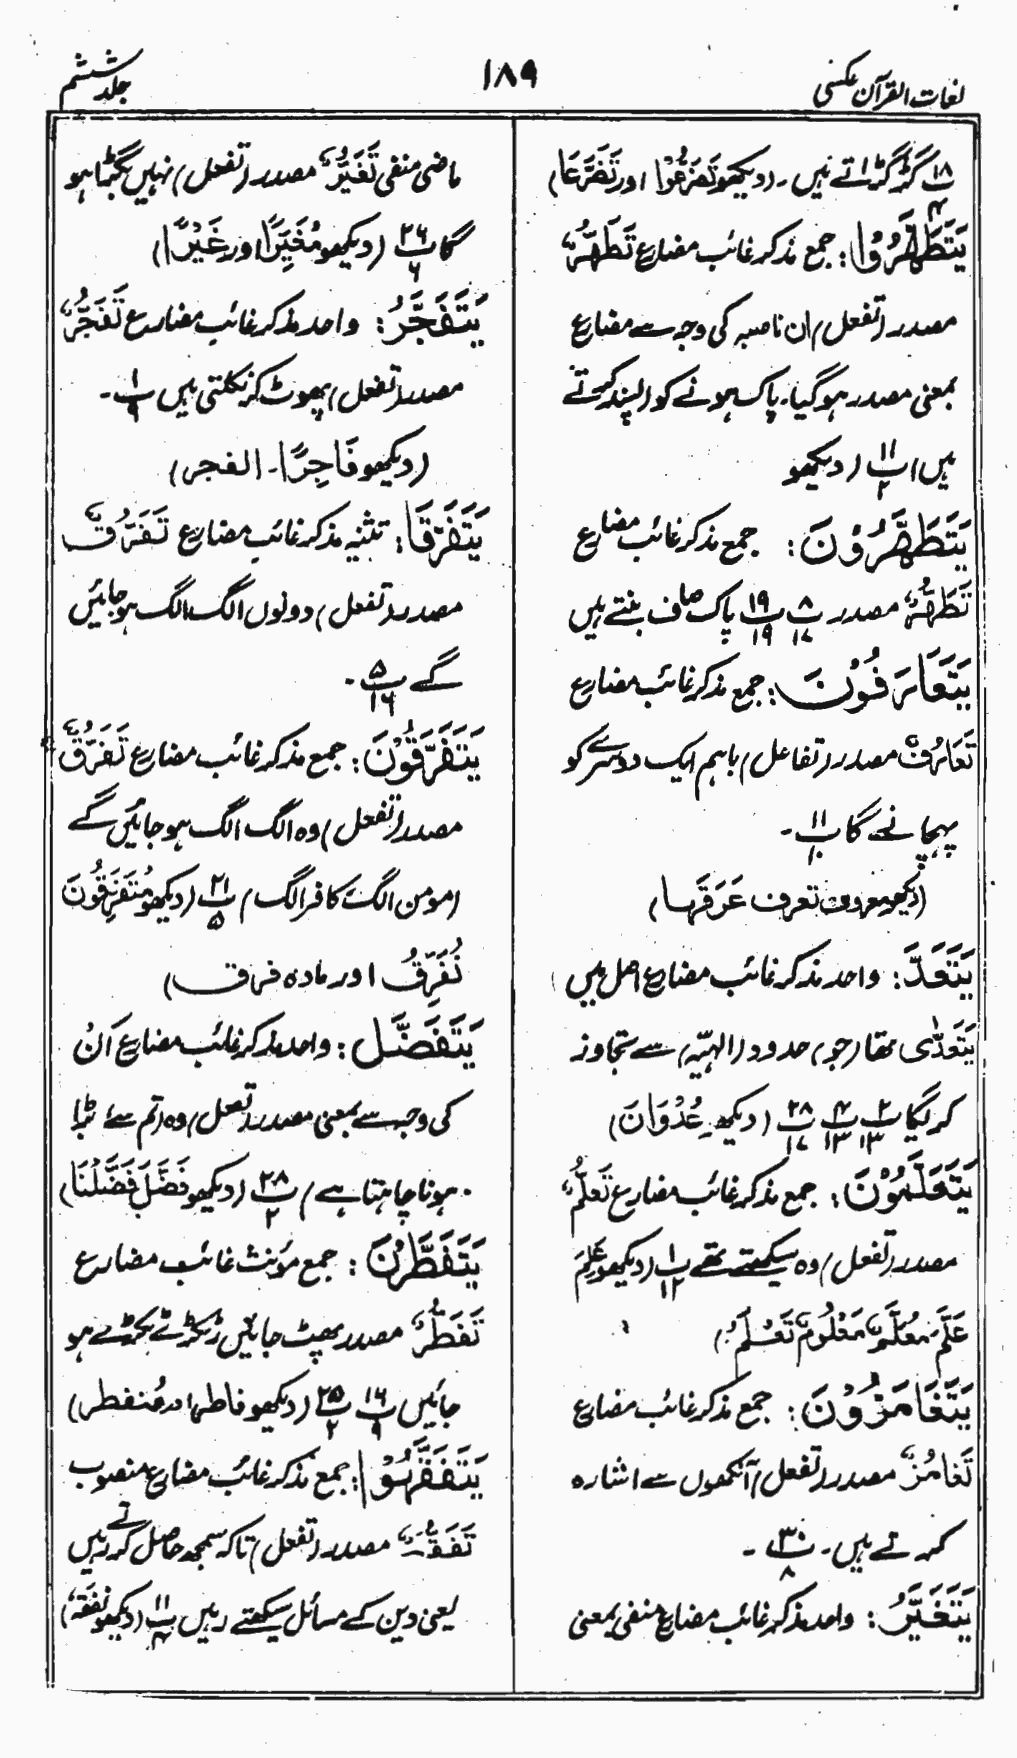 لغات القرآن عکسی
۱۸۹
جلد ششم
۱۸ پ ۴ گڑگڑاتے ہیں۔ (دیکھو تَضَرَّعُوْا اور تَضَرُّعًا)
یَتَطَهَّرُوْا: جمع مذکر غائب مضارع تَطَهُّرٌ
مصدر (تفعل) ان ناصبہ کی وجہ سے مضارع
بمعنی مصدر ہو گیا۔ پاک ہونے کو (پسند کرتے
ہیں) پ ۱۱/۲ (دیکھو
یَتَطَهَّرُوْنَ: جمع مذکر غائب مضارع
تَطَهُّرٌ مصدر پ ۸/۱۷ پ ۱۹/۱۹ پاک صاف بنتے ہیں
یَتَعَارَفُوْنَ: جمع مذکر غائب مضارع
تَعَارُفٌ مصدر (تفاعل) باہم ایک دوسرے کو
پہچانے گا پ ۱۱/۱۰۔
(دیکھو معروف تعرف عَرَّفَهَا)
یَتَعَدَّ: واحد مذکر غائب مضارع اصل میں
یَتَعَدّٰی تھا (جو) حدود (الہیّہ) سے تجاوز
کرلیگا پ ۲/۱۳ پ ۴/۱۳ پ ۲۸/۱۷ (دیکھو عُدْوَانَ)
یَتَعَلَّمُوْنَ: جمع مذکر غائب مضارع تَعَلُّمٌ
مصدر (تفعل) وہ سیکھتے تھے پ ۱/۱۲ (دیکھو عَلِمَ
عَلَّمَ مُعَلَّمٌ مَعْلُوْمٌ تَعْلَمُ)
یَتَغَامَزُوْنَ: جمع مذکر غائب مضارع
تَغَامُزٌ مصدر (تفعل) آنکھوں سے اشارہ
کرتے ہیں۔ پ ۳۰/۸۔
یَتَغَیَّرُ: واحد مذکر غائب مضارع منفی بمعنی
ماضی منفی تَغَیُّرٌ مصدر (تفعل) نہیں بگڑا ہو
گا پ ۲۶/۶ (دیکھو مُغَیِّرًا اور غَیْرًا)
یَتَفَجَّرُ: واحد مذکر غائب مضارع تَفَجُّرٌ
مصدر (تفعل) پھوٹ کر نکلتی ہیں پ ۱/۹۔
(دیکھو فَاجِرًا۔ الفجر)
یَتَفَرَّقَا: تثنیہ مذکر غائب مضارع تَفَرُّقٌ
مصدر (تفعل) دونوں الگ الگ ہو جائیں
گے پ ۵/۱۶۔
یَتَفَرَّقُوْنَ: جمع مذکر غائب مضارع تَفَرُّقٌ
مصدر (تفعل) وہ الگ الگ ہو جائیں گے
(مومن الگ کافر الگ) پ ۲۱/۵ (دیکھو مُتَفَرِّقُوْنَ
نُفَرِّقُ اور مادہ ف ر ق)
یَتَفَضَّل: واحد مذکر غائب مضارع اَنْ
کی وجہ سے بمعنی مصدر (تفعل) وہ (تم سے) بڑا
ہونا چاہتا ہے) پ ۲۸/۲ (دیکھو فَضَّلَ فَضَّلْنَا)
یَتَفَطَّرْنَ: جمع مؤنث غائب مضارع
تَفَطُّرٌ مصدر پھٹ جائیں (ٹکڑے ٹکڑے ہو
جائیں پ ۱۶/۹ پ ۲۵/۲ (دیکھو فاطر اور مُنفطر)
یَتَفَقَّهُوْا: جمع مذکر غائب مضارع منصوب
تَفَقُّهٌ مصدر (تفعل) تاکہ سمجھ حاصل کرتے رہیں
یعنی دین کے مسائل سیکھتے رہیں پ ۱۱/۴ (دیکھو نفقہ)